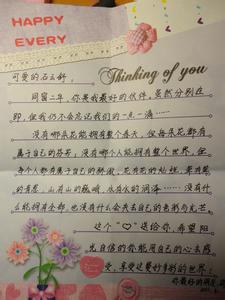 HAPPY
EVERY
可爱的石云舒：
Thinking of you
同窗二年，你是我最好的伙伴，虽然分别在
即，但我仍不会忘记我们的一点一滴……
没有哪朵花能拥有整个春天，但每朵花都有
属于自己的芬芳，没有哪个人能拥有整个世界，但
每个人都有属于自己的骄傲，花有花的灿烂，草有草
的青葱，山有山的巍峨，水有水的润泽……没有什
么能拥有全部，也没有什么会失去自己的色彩与光芒
这个“♡”送给你，希望阳
光自信的你能用自己的心去感
受，享受这美好多彩的世界！
你最好的朋友